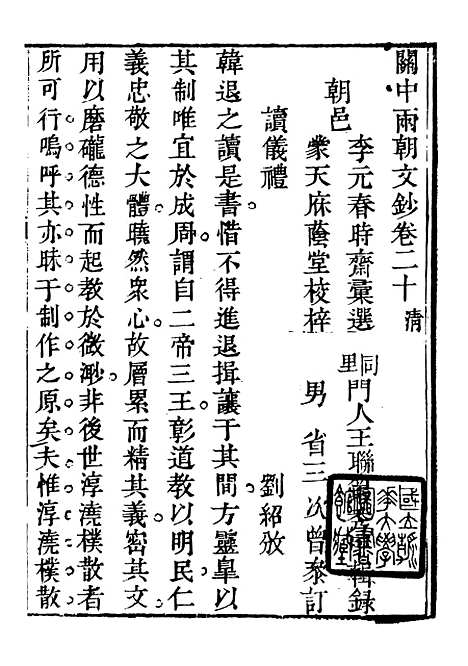 關中兩朝文鈔卷二十 清
朝邑
李元春時齋彙選
蒙天庥蔭堂校梓
同里
門人王聯 輯錄
男省三次曾泰訂
讀儀禮
劉紹攽
韓退之讀是書惜不得進退揖讓于其間方靈臯以
其制唯宜於成周謂自二帝三王彰道教以明民仁
義忠敬之大體曉然衆心故層累而精其義密其文
用以磨礲德性而起教於微渺非後世淳澆樸散者
所可行嗚呼其亦昧于制作之原矣夫惟淳澆樸散